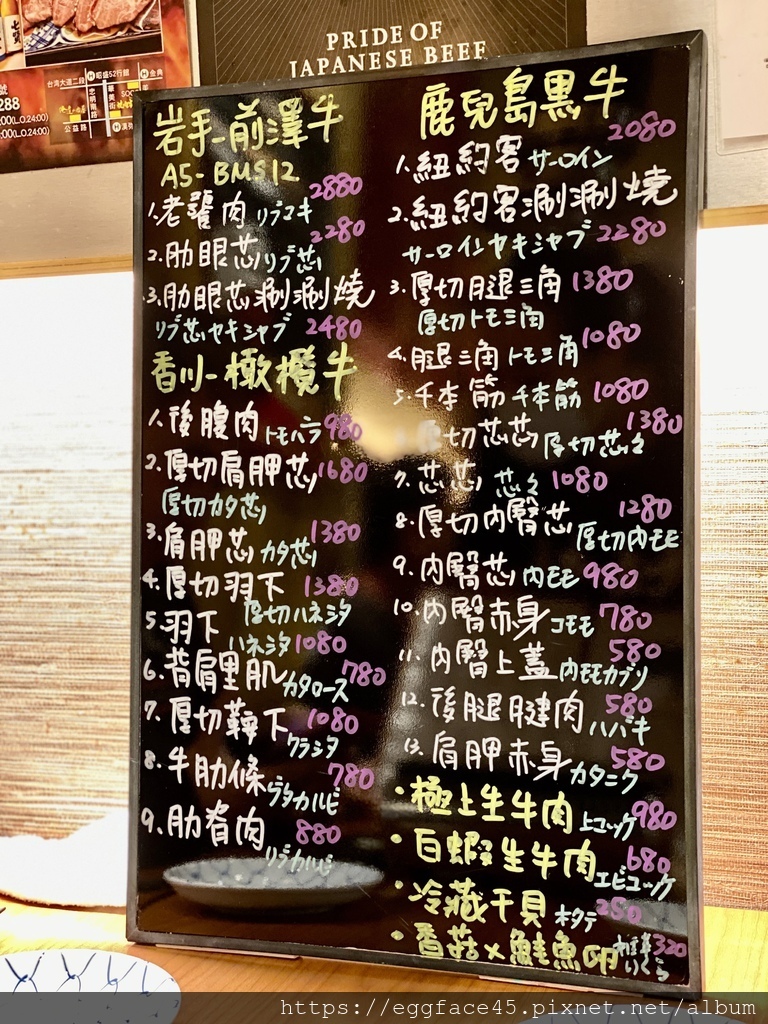 PRIDE OF
JAPANESE BEEF
台湾大道二段
金典
忠明南路
公益路
288
岩手-前澤牛
A5-BMS12
1.老饕肉 リブマキ 2880
2.肋眼芯 リブ芯 2280
3.肋眼芯涮涮燒
リブ芯ヤキシャブ 2480
香川-橄欖牛
1.後腹肉 トモハラ 980
2.厚切肩胛芯 1680
厚切カタ芯
3.肩胛芯 カタ芯 1380
4.厚切羽下 1380
厚切ハネシタ
5.羽下 ハネシタ 1080
6.背肩里肌 カタロース 780
7.厚切鞍下 クラシタ 1080
8.牛肋條 ゲタカルビ 780
9.肋脊肉 リブカルビ 880
鹿兒島黒牛
1.紐約客 サーロイン 2080
2.紐約客涮涮燒
サーロインヤキシャブ 2280
3.厚切腿三角 1380
厚切トモ三角
4.腿三角 トモ三角 1080
5.千本筋 千本筋 1080
切芯芯 厚切芯々 1380
7.芯芯 芯々 1080
8.厚切内臀芯 厚切内モモ 1280
9.内臀芯 内モモ 980
10.内臀赤身 コモモ 780
11.内臀上蓋 内モモカブリ 580
12.後腿腱肉 ハバキ 580
13.肩胛赤身 カタニク 580
・極上生牛肉 上ユッケ 980
・白蝦生牛肉 エビユッケ 680
・冷藏干貝 ホタテ 250
・香菇×鮭魚卵 いくら 320
https://eggface45.pixnet.net/album